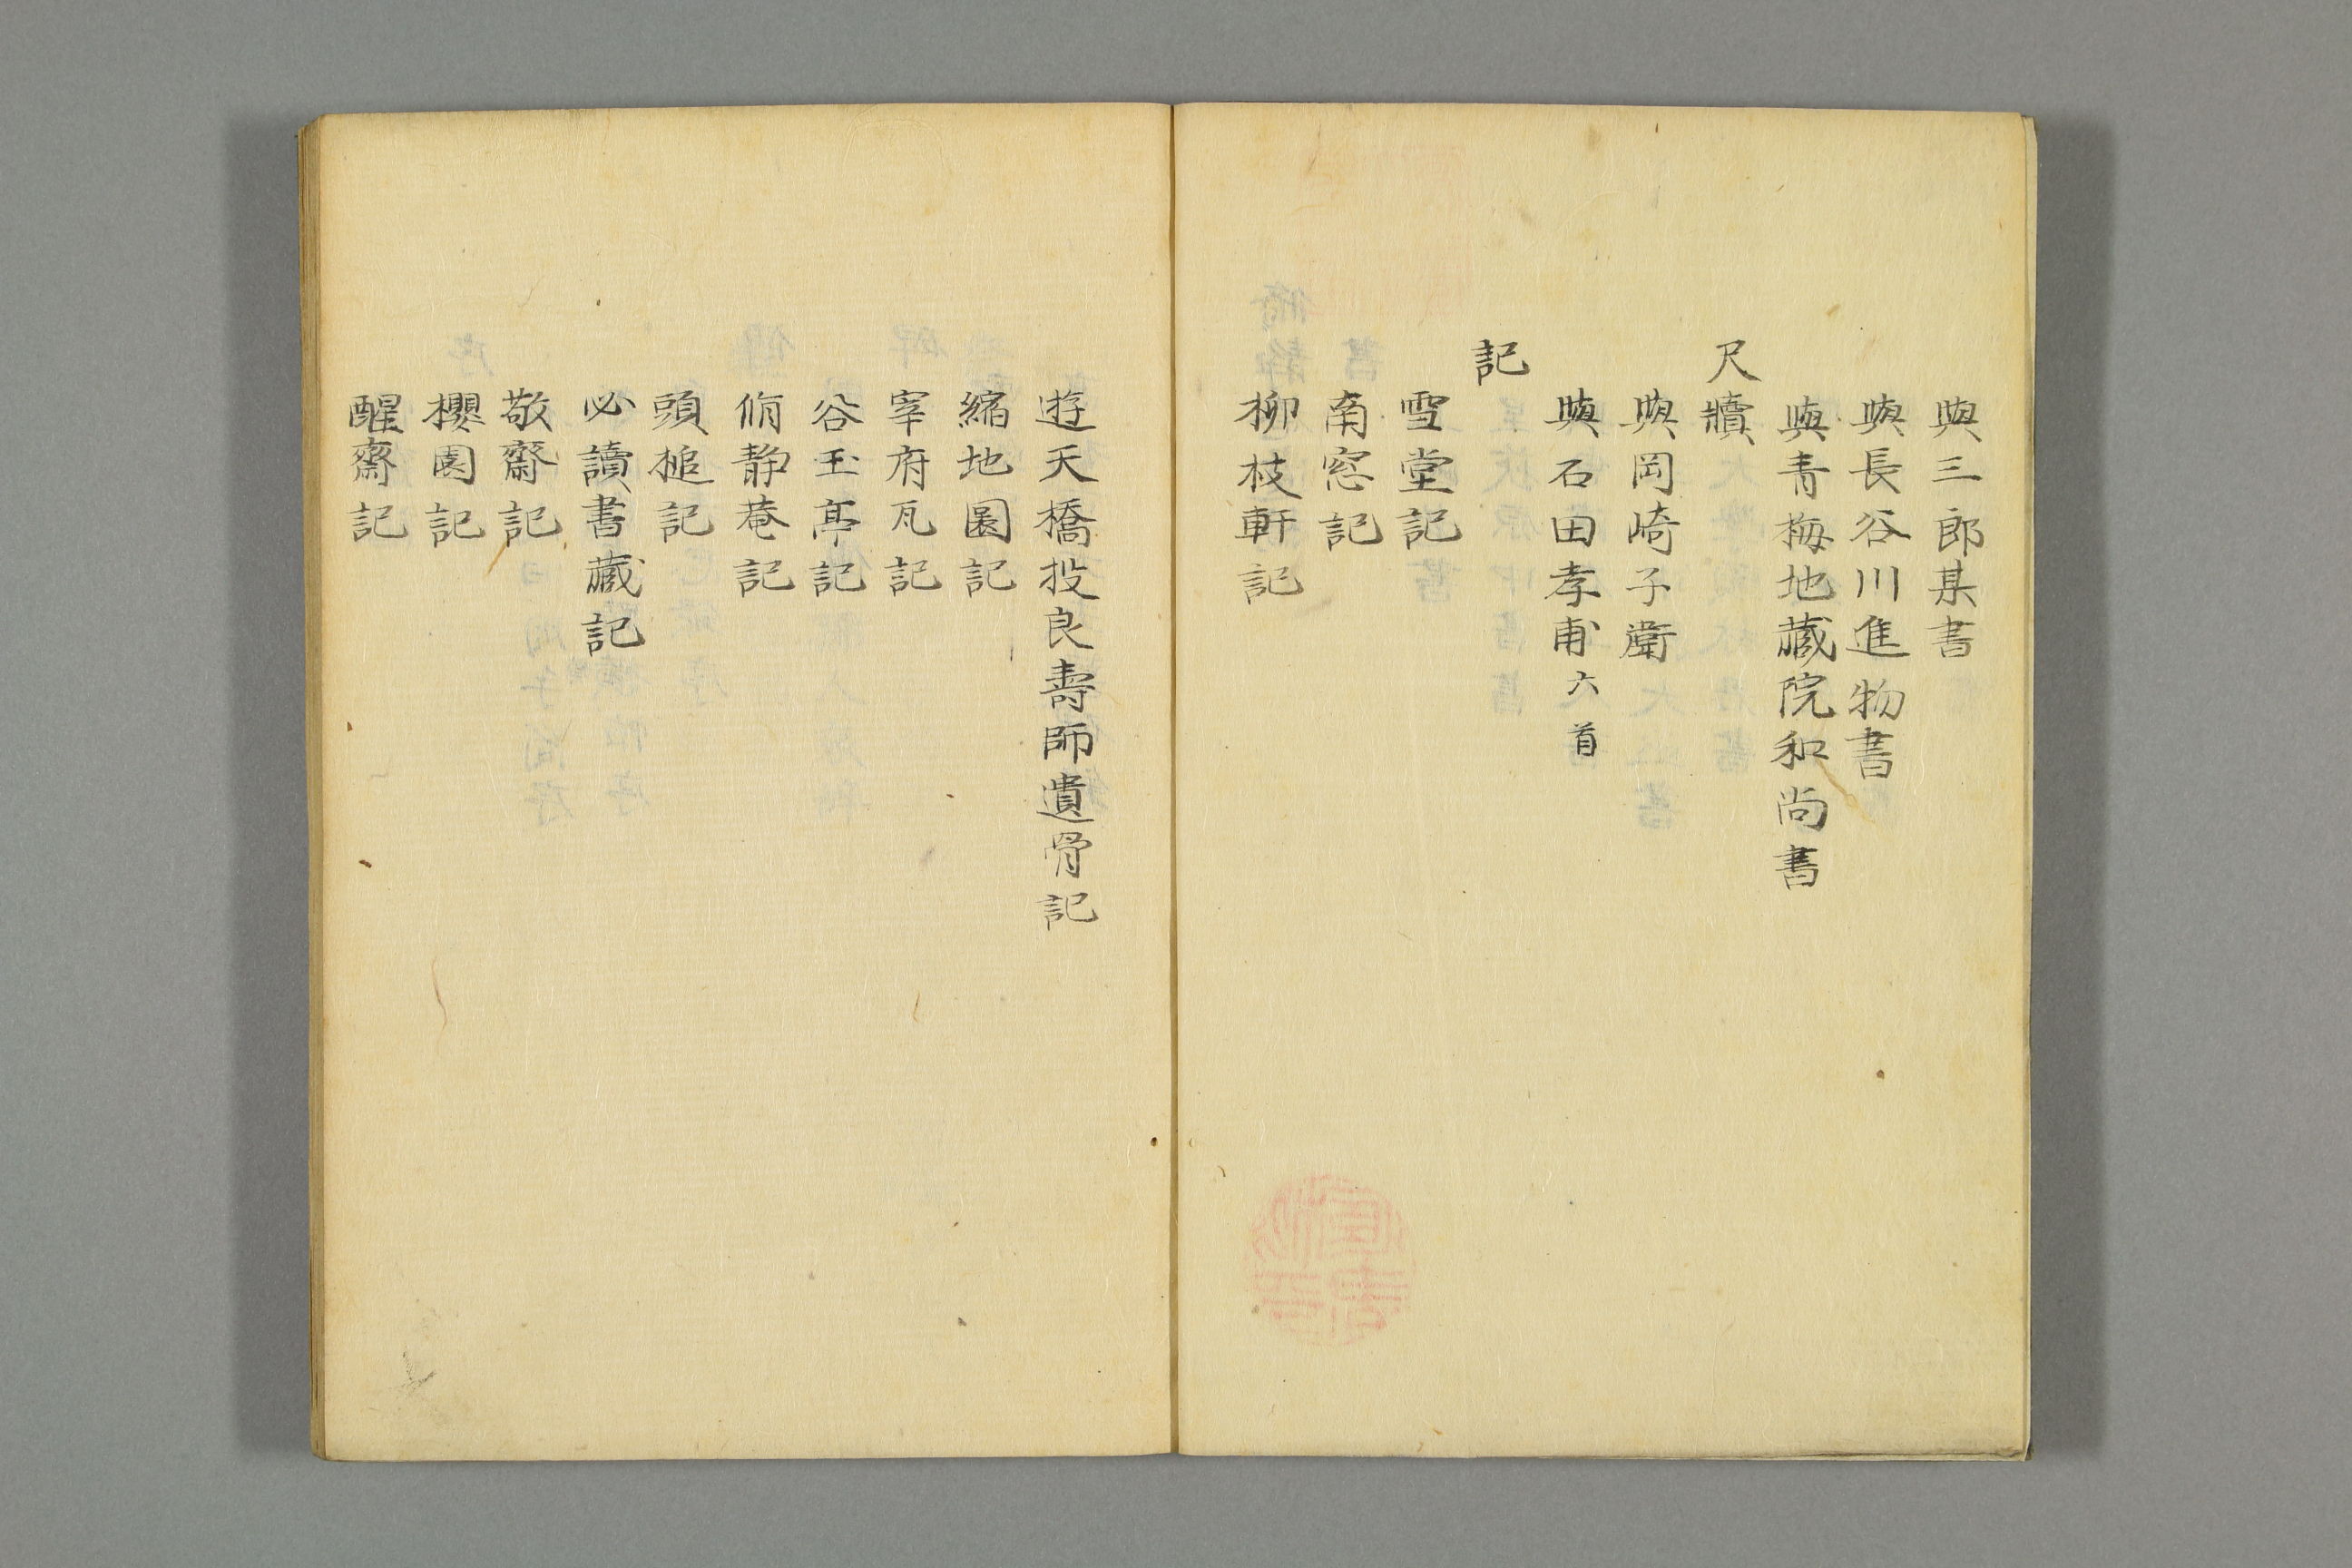 與三郎某書
與長谷川進物書
與青梅地藏院和尚書
尺牘
與岡崎子衛
與石田孝甫六首
記
雪堂記
南窓記
柳枝軒記
遊天橋投良壽師遺骨記
縮地園記
宰府瓦記
谷玉亭記
脩静菴記
頭槌記
必讀書藏記
敬齋記
櫻園記
醒齋記